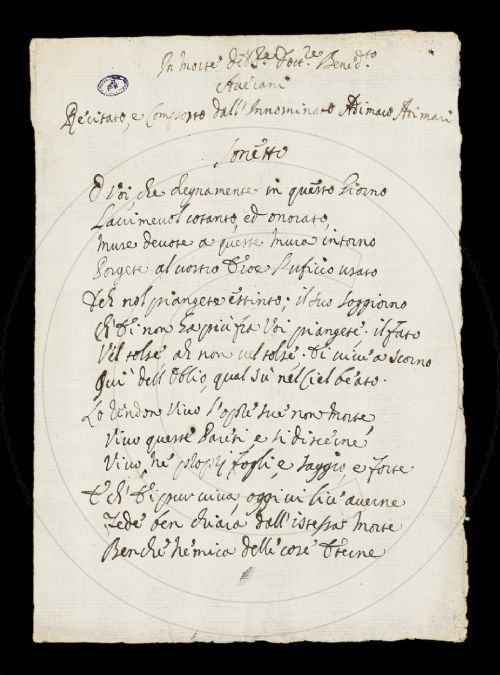 In Morte del Sr. Dott.re Bened.to
Averani
Recitato, e Composto dall'Innominato Adimaro Adimari
Sonetto
O Voi, che degnamente in questo Giorno
Lacrimevol cotanto, ed onorato,
Muse devote a queste mura intorno
Porgete al vostro Eroe l'uficio usato
Deh nol piangete estinto; il suo soggiorno
Ch'Ei non ha più fra Voi piangete. il Fato
Vel tolse ah non vel tolse. Ei vive a scorno
Qui dell'Oblio, qual sù nel Ciel beato.
Lo rendon Vivo l'opre sue non Morte
Vivo queste Pareti, e si discerne
Vivo ne' proprj fogli, e saggio, e forte
E ch'Ei pur viva, oggi vi
Fede ben chiara dall'istessa Morte
Benche nemica delle cose Eterne